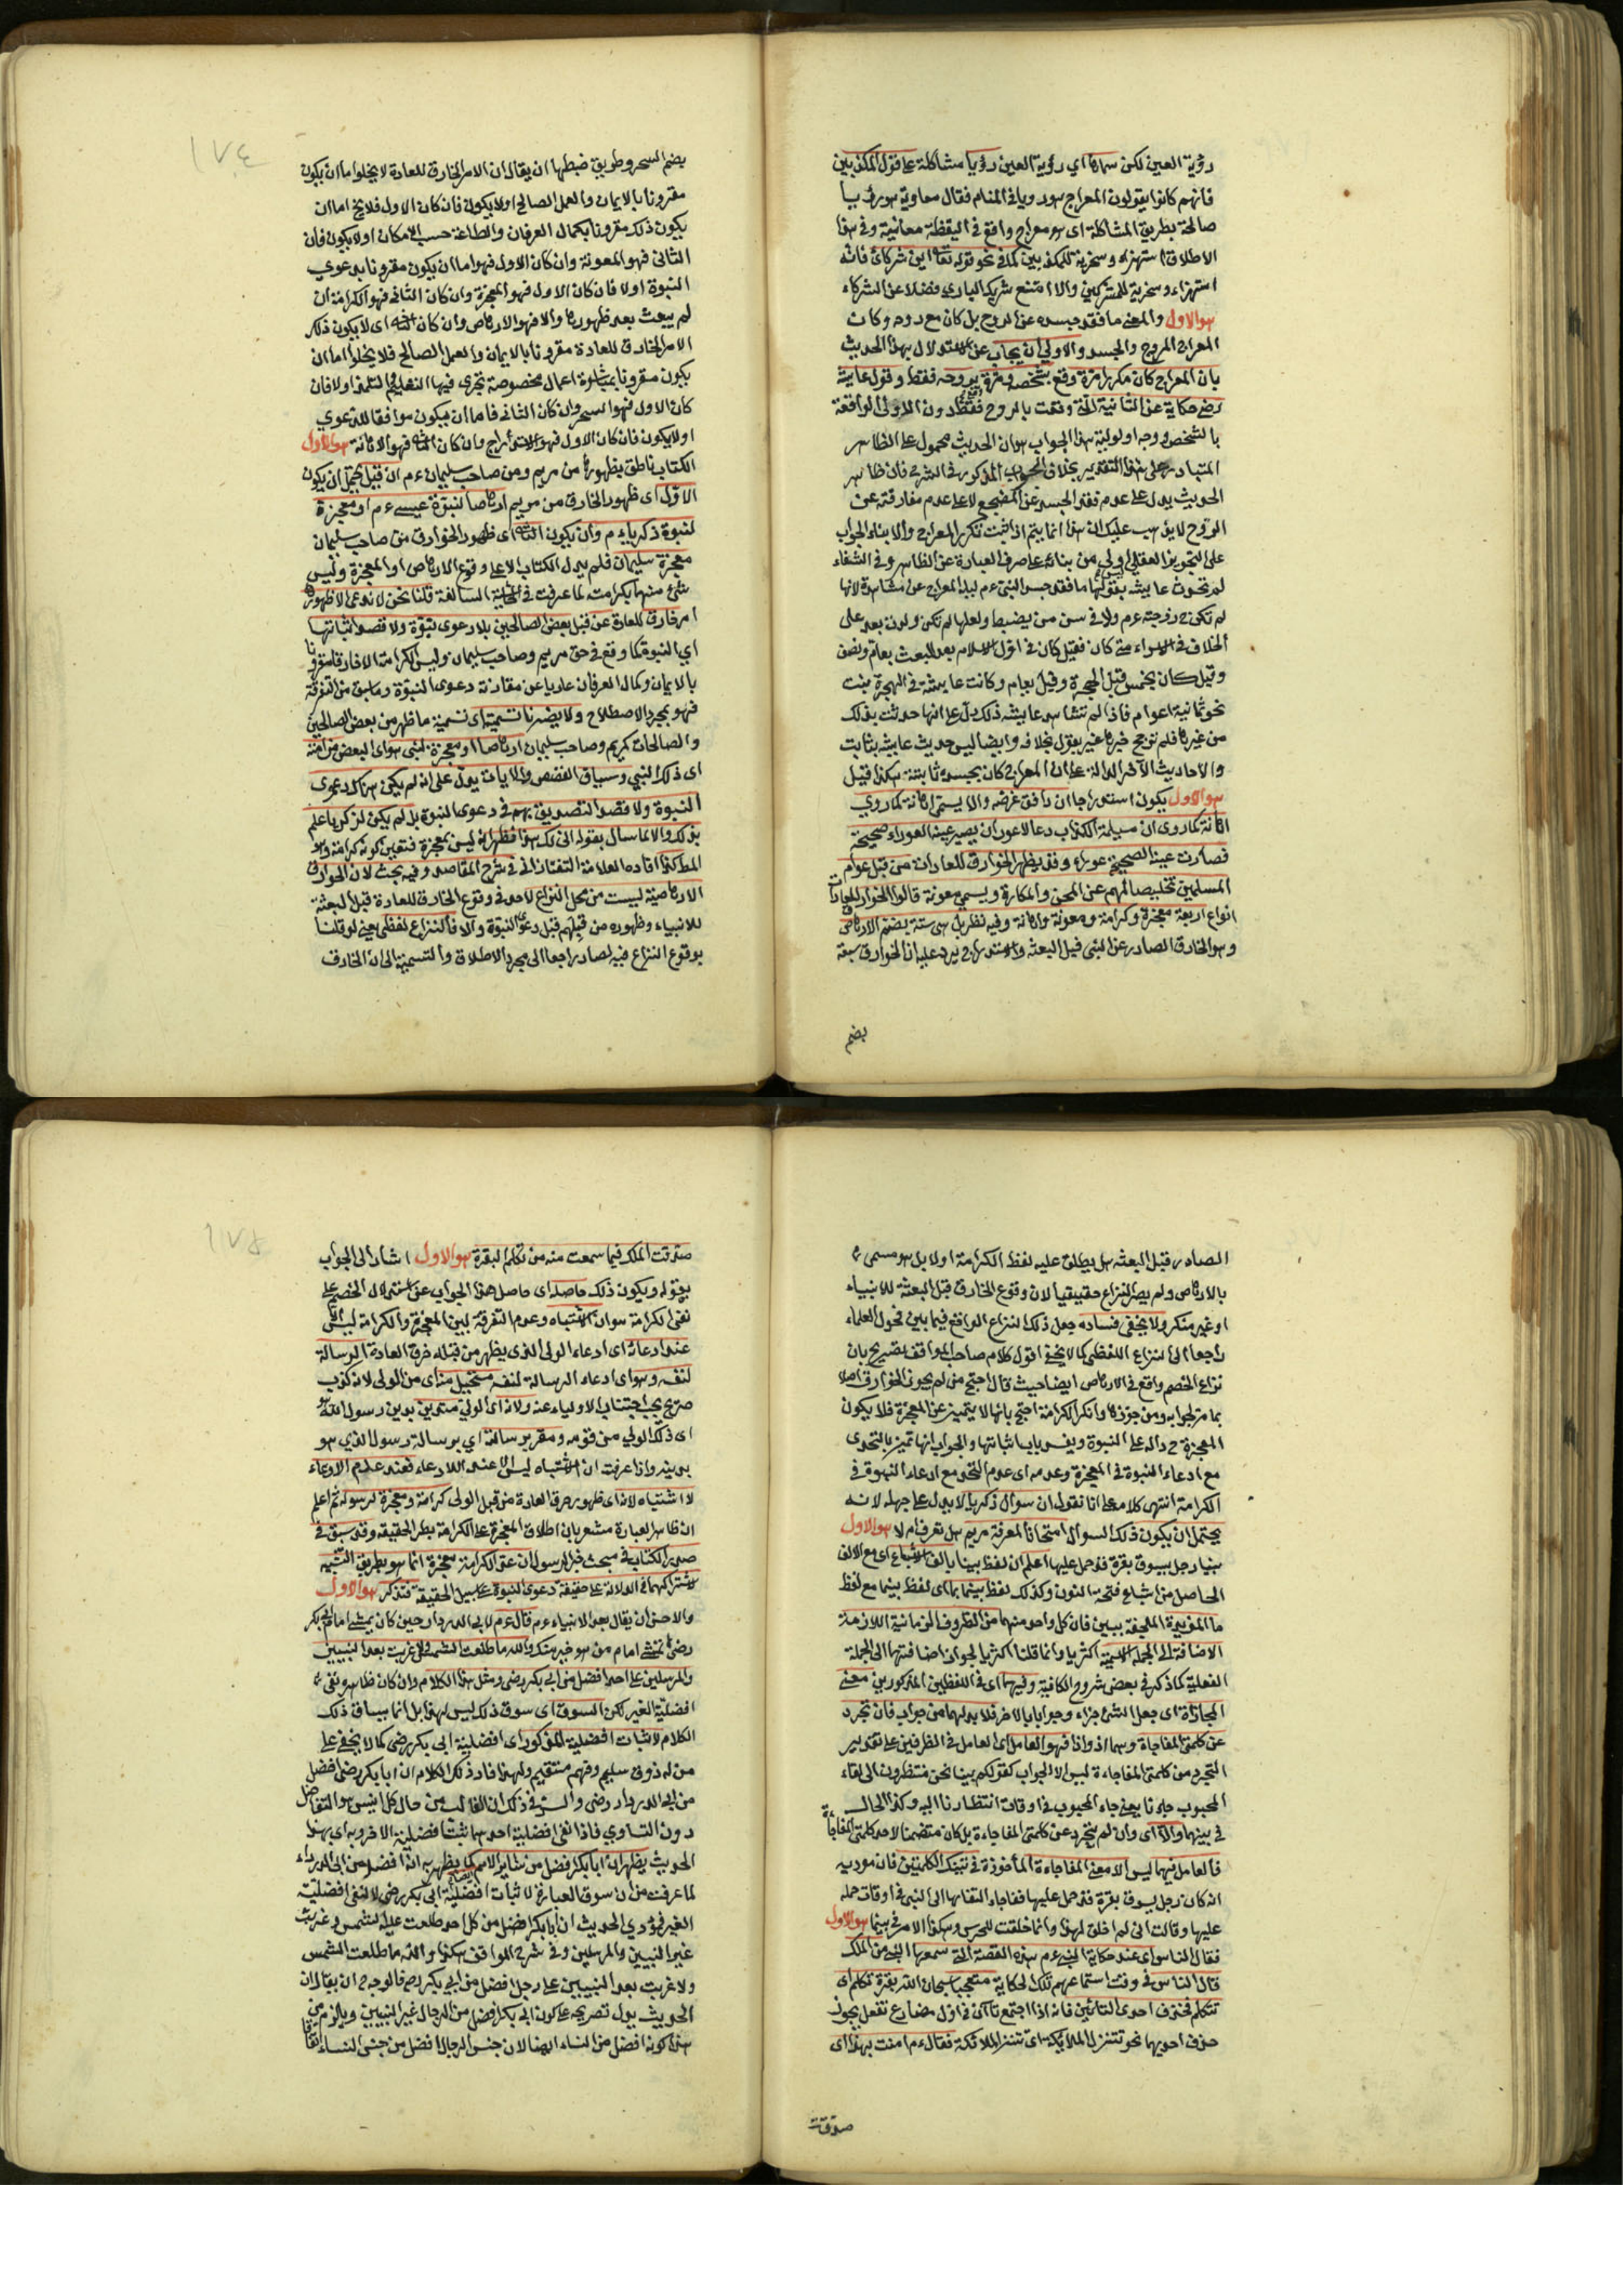 رؤية العين لكن سماها اي رؤية العين رؤيا مشاكلة على قول المكذبين
فانهم كانوا يقولون المعراج هو رويا في المنام فقال معاوية هو رؤيا
صالحة بطريق المشاكلة اى هو معراج واقع في اليقظة معاينة وفي هذا
الاطلاق استهزاء وسخرية للمكذبين كما في نحو قوله تعالى اين شركائ فانه
استهزاء وسخرية للمشركين والا امتنع شريك الباري فضلا عن الشركاء
هو الاول والمعنى ما فقد جسده عن الروح بل كان مع روحه وكان
المعراج للروح والجسد والاولى ان يجاب عن الاستدلال بهذا الحديث
بان المعراج كان مكررا مرة وقع بشخصه ومرة بروحه فقط وقول عايشة
رضى حكاية عن الثانية التى وقعت بالروح فقط دون الاولى الواقعة
بالشخص ووجه اولوية هذا الجواب هو ان الحديث محمول على الظاهر
المتبادر على هذا التقدير بخلاف الجواب المذكور في الشرح فان ظاهر
الحديث يدل على عدم فقد الجسد عن المضجع لا على عدم مفارقة عن
الروح لا يذهب عليك ان هذا انما يتم اذا ثبت تكرر المعراج والا بناء الجواب
على التجويز العقلي اولى من بنائه على صرف العبارة عن الظاهر وفي الشفاء
لم تحدث عايشه بقولها ما فقد جسد النبى ءم ليلة المعراج عن مشاهدة لانها
لم تكن ح زوجته ءم ولا في سن من يضبط ولعلها لم تكن ولدت بعد على
الخلاف في الاسراء متى كان فقيل كان في اول الاسلام بعد المبعث بعام ونصف
وقيل كان بخمس قبل الهجرة وقيل بعام وكانت عايشة في الهجرة بنت
نحو ثمانية اعوام فاذا لم تشاهد عايشه ذلك دل على انها حدثت بذلك
من غيرها فلم ترجح خبرها غير يقول بخلافه وايضا ليس حديث عايشه بثابت
والاحاديث الآخر الدالة على ان المعراج كان بجسده ثابتة هكذا قيل
هو الاول يكون استدراجا ان وافق غرضه والا يسمى اهانة كما روي
اهانة كما روى ان مسيلمة الكذاب دعا لاعور ان يصير عينه العوراء صحيحة
فصارت عينه الصحيحة عوراء وقد يظهر الخوارق للعادات من قبل عوام
المسلمين تخليصا لهم عن المحن والمكاره ويسمى معونة قالوا الخوارق للعادات
انواع اربعة معجزة وكرامة ومعونة واهانة وفيه نظر بل هى ستة بضم الارهاص
وهو الخارق الصادر عن النبى قبل البعثة والاستدراج يرد عليه ان الخوارق سبعة
بضم
١٧٤
بضم السحر وطريق ضبطها ان يقال ان الامر الخارق للعادة لا يخلوا ما ان يكون
مقرونا بالايمان والعمل الصالح اولا يكون فان كان الاول فلا يخ اما ان
يكون ذلك مقرونا بكمال العرفان والطاعة حسب الامكان اولا يكون فان
الثانى فهو المعونة وان كان الاول فهو اما ان يكون مقرونا بدعوي
النبوة اولا فان كان الاول فهو المعجزة وان كان الثانى فهو الكرامة ان
لم يبعث بعد ظهورها والا فهو الارهاص وان كان الثانى اى لا يكون ذلك
الامر الخارق للعادة مقرونا بالايمان والعمل الصالح فلا يخلوا اما ان
يكون مقرونا بمباشرة اعمال مخصوصة تجرى فيها التعليم والتلمذ اولا فان
كان الاول فهو السحر وان كان الثانى فاما ان يكون موافقا للدعوي
اولا يكون فان كان الاول فهو الاستدراج وان كان الثانى فهو الاهانة هو الاول
الكتاب ناطق بظهورها من مريم ومن صاحب سليمان ءم ان قيل يحتمل ان يكون
الاول اى ظهور الخارق من مريم ارهاصا لنبوة عيسى ءم او معجزة
لنبوة زكرياء ءم وان يكون الثانى اى ظهور الخوارق من صاحب سليمان
معجزة سليمان فلم يدل الكتاب الا على وقوع الارهاص او المعجزة وليس
شئ منهما بكرامته لما عرفت في الحاشية السالفة قلنا نحن لا ندعى الا ظهور
امر خارق للعادة عن قبل بعض الصالحين بلا دعوى نبوة ولا قصد اثباتها
اي النبوة كما وقع في حق مريم وصاحب سليمان وليس الكرامة الا خارقا مقرونا
بالايمان وكمال العرفان عاديا عن مقارنة دعوى النبوة وما سبق من التفرقة
فهو بمجرد الاصطلاح ولا يضرنا تسميته اى تسمية ما ظهر من بعض الصالحين
والصالحات كمريم وصاحب سليمان ارهاصا او معجزة لنبى هو اى البعض من امته
اى ذلك النبي وسياق القصص والايات يدل على انه لم يكن هناك دعوى
النبوة ولا قصد التصديق بهم في دعوى النبوة بل لم يكن لزكريا علم
بذلك والا لما سال بقوله انى لك هذا فظهر انه ليس بمعجزة فتعين كونه كرامة وهو
المط كذا افاده العلامة التفتازانى في شرح المقاصد وفيه بحث لان الخوارق
الارهاصية ليست من محل النزاع لاحد في وقوع الخارق للعادة قبل البعثة
للانبياء وظهوره من قبلهم قبل دعوى النبوة والا فالنزاع لفظى يعنى لو قلنا
بوقوع النزاع فيه لصار راجعا الى مجرد الاطلاق والتسمية الى ان الخارق
الصادر قبل البعثة هل يطلق عليه لفظ الكرامة اولا بل هو مسمى
بالارهاص ولم يصر النزاع حقيقيا لان وقوع الخارق قبل البعثة للانبياء
او غير منكر ولا يخفى فساده جعل ذلك النزاع الواقع فيما بين فحول العلماء
راجعا الى النزاع اللفظى كما لا يخفى اقول كلام صاحب المواقف تصريح بان
نزاع الخصم واقع في الارهاص ايضا حيث قال احتج من لم يجوز الخوارق اصلا
بما مر بجوابه ومن جوزها وانكر الكرامة احتج بانها لا يتميز عن المعجزة فلا يكون
المعجزة ح دالة على النبوة وينسد باب اثباتها والجواب انها تميز بالتحدى
مع ادعاء النبوة في المعجزة وعدمه اى عدم التحدى مع ادعاء النبوة في
الكرامة انتهى كلامه على انا نقول ان سوال زكريا لا يدل على جهله لانه
يحتمل ان يكون ذلك السوال امتحانا لمعرفة مريم هل تعرف ام لا هو الاول
بينا رجل يسوق بقرة قد حمل عليها اعلم ان لفظ بينا بالف الاشباع اى مع الالف
الحاصل من اشباع فتحة النون وكذلك لفظ بينما بما اى لفظ بينما مع لفظ
ما المزيدة الملحقة ببين فان كل واحد منهما من الظروف الزمانية اللازمة
الاضافة الى الجملة الاسمية اكثريا وانما قلنا اكثريا لجواز اضافتها الى الجملة
الفعلية كما ذكر في بعض شروح الكافية وفيهما اى في اللفظين المذكورين معنى
المجازاة اى جعل الشئ جزاء وجوابا بالاخر فلا بد لهما من جواب فان تجرد
عن كلمتى المفاجاة وهما اذ واذا فهو العامل اى العامل في الظرفين على تقدير
التجرد من كلمتى المفاجاة ليس الا الجواب كقولكم بينا نحن منتظرون الى لقاء
المحبوب جاءنا يعنى جاء المحبوب في اوقات انتظارنا اليه وكذا الحال
في بينهما والا اى وان لم يتجرد عن كلمتى المفاجاءة بل كان متضمنا لاحد كلمتى المفاجاة
فالعامل فيهما ليس الا معنى المفاجاءة المأخوذة في تينك الكلمتين فان موديه
انه كان رجل يسوق بقرة قد حمل عليها ففاجاء التفاتها الى النبى في اوقات حمله
عليها وقالت انى لم اخلق لهذا وانما خلقت للحرس وهكذا الامر في بينما هو الاول
فقال الناس اى عند حكاية النبى ءم هذه القصة التى سمعها النبى من الملك
قال الناس في وقت استماعهم تلك الحكاية متعجبا سبحان الله بقرة تكلم اى
تتكلم فحذف احدى التائين فانه اذا اجتمع تاآن في اول مضارع تفعل يجوز
حذف احديهما نحو تتنزل الملايكة اى تتنزل الملائكة فقال ءم امنت بهذا اى
صدقت
١٧٥
صدقت الملك فيما سمعت منه من تكلم البقرة هو الاول اشار الى الجواب
بقوله ويكون ذلك حاصله اى حاصل هذا الجواب عن استدلال الخصم على
نفى الكرامة هو ان الاشتباه وعدم التفرقة بين المعجزة والكرامة ليس الا
عند ادعائه اى ادعاء الولى الذى يظهر من قبله خرق العادة الرسالة
لنفسه وهو اى ادعاء الرسالة لنفسه مستحيل منه اى من الولى لانه كذب
صريح يجب اجتناب الاولياء عنه ولانه اى الولي متدين بدين رسول الله
اى ذلك الولي من قومه ومقر برسالته اي برسالة رسول الذي هو
بدينه واذا عرفت ان الاشتباه ليس الا عند الادعاء فعند عدم الادعاء
لا اشتباه لانه اى ظهور خرق العادة من قبل الولى كرامة له ومعجزة لرسوله ثم اعلم
ان ظاهر العبارة مشعر بان اطلاق المعجزة على الكرامة بطريق الحقيقه وقد سبق في
صدر الكتاب في مبحث خبر الرسول ان عد الكرامة معجزة انما هو بطريق التشبيه
لاشتراكهما في الدلالة على حقيقة دعوى النبوة على سبيل الحقيقة فتذكر هو الاول
والاحسن ان يقال بعد الانبياء ءم قال ءم لابى الدرداء حين كان يمشى امام ابى بكر
رضى تمشى امام من هو خير منك والله ما طلعت الشمس ولا غربت بعد النبيين
والمرسلين على احد افضل من ابى بكر رضى ومثل هذا الكلام وان كان ظاهره نفى
افضلية الغير لكن السوق اى سوق ذلك ليس لهذا بل انما يساق ذلك
الكلام لاثبات افضلية المذكور اى افضلية ابى بكر رضى كما لا يخفى على
من له ذوق سليم وفهم مستقيم ولهذا افاد ذلك الكلام ان ابا بكر رضى افضل
من ابى الدرداء رضى والسر في ذلك ان الغالب من حال كل اثنين هو التفاضل
دون التساوي فاذا نفى افضلية احدهما ثبت افضلية الاخر وبه اى بهذا
الحديث يظهر ان ابا بكر افضل من سائر الامم كما يظهر به انه افضل من ابى الدرداء
لما عرفت من ان سوق العبارة لاثبات افضلية ابى بكر رضى لا لنفى افضلية
الغير فمؤدي الحديث ان ابا بكر افضل من كل احد طلعت عليه الشمس وغربت
غير النبيين والمرسلين وفي شرح المواقف هكذا والله ما طلعت الشمس
ولا غربت بعد النبيين على رجل افضل من ابي بكر رضى فالوجه ح ان يقال ان
الحديث يدل تصريحه على كون ابى بكر افضل من الرجال غير النبيين ويلزم من
هذا كونه افضل من النساء ايضا لان جنس الرجال افضل من جنس النساء اتفاقا